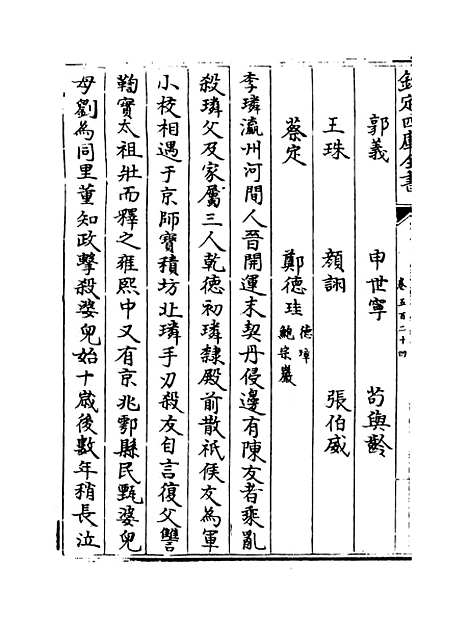 欽定四庫全書
卷五百二十四
郭義 申世寧 茍與齡
王珠 顔詡 張伯威
蔡定 鄭德珪 德璋 鮑宗巖
李璘瀛州河間人晉開運末契丹侵邊有陳友者乘亂
殺璘父及家屬三人乾德初璘隸殿前散祇候友為軍
小校相遇于京師寶積坊北璘手刃殺友自言復父讐
鞫實太祖壯而釋之雍熙中又有京兆鄠縣民甄婆兒
母劉為同里董知政擊殺婆兒始十歳後數年稍長泣